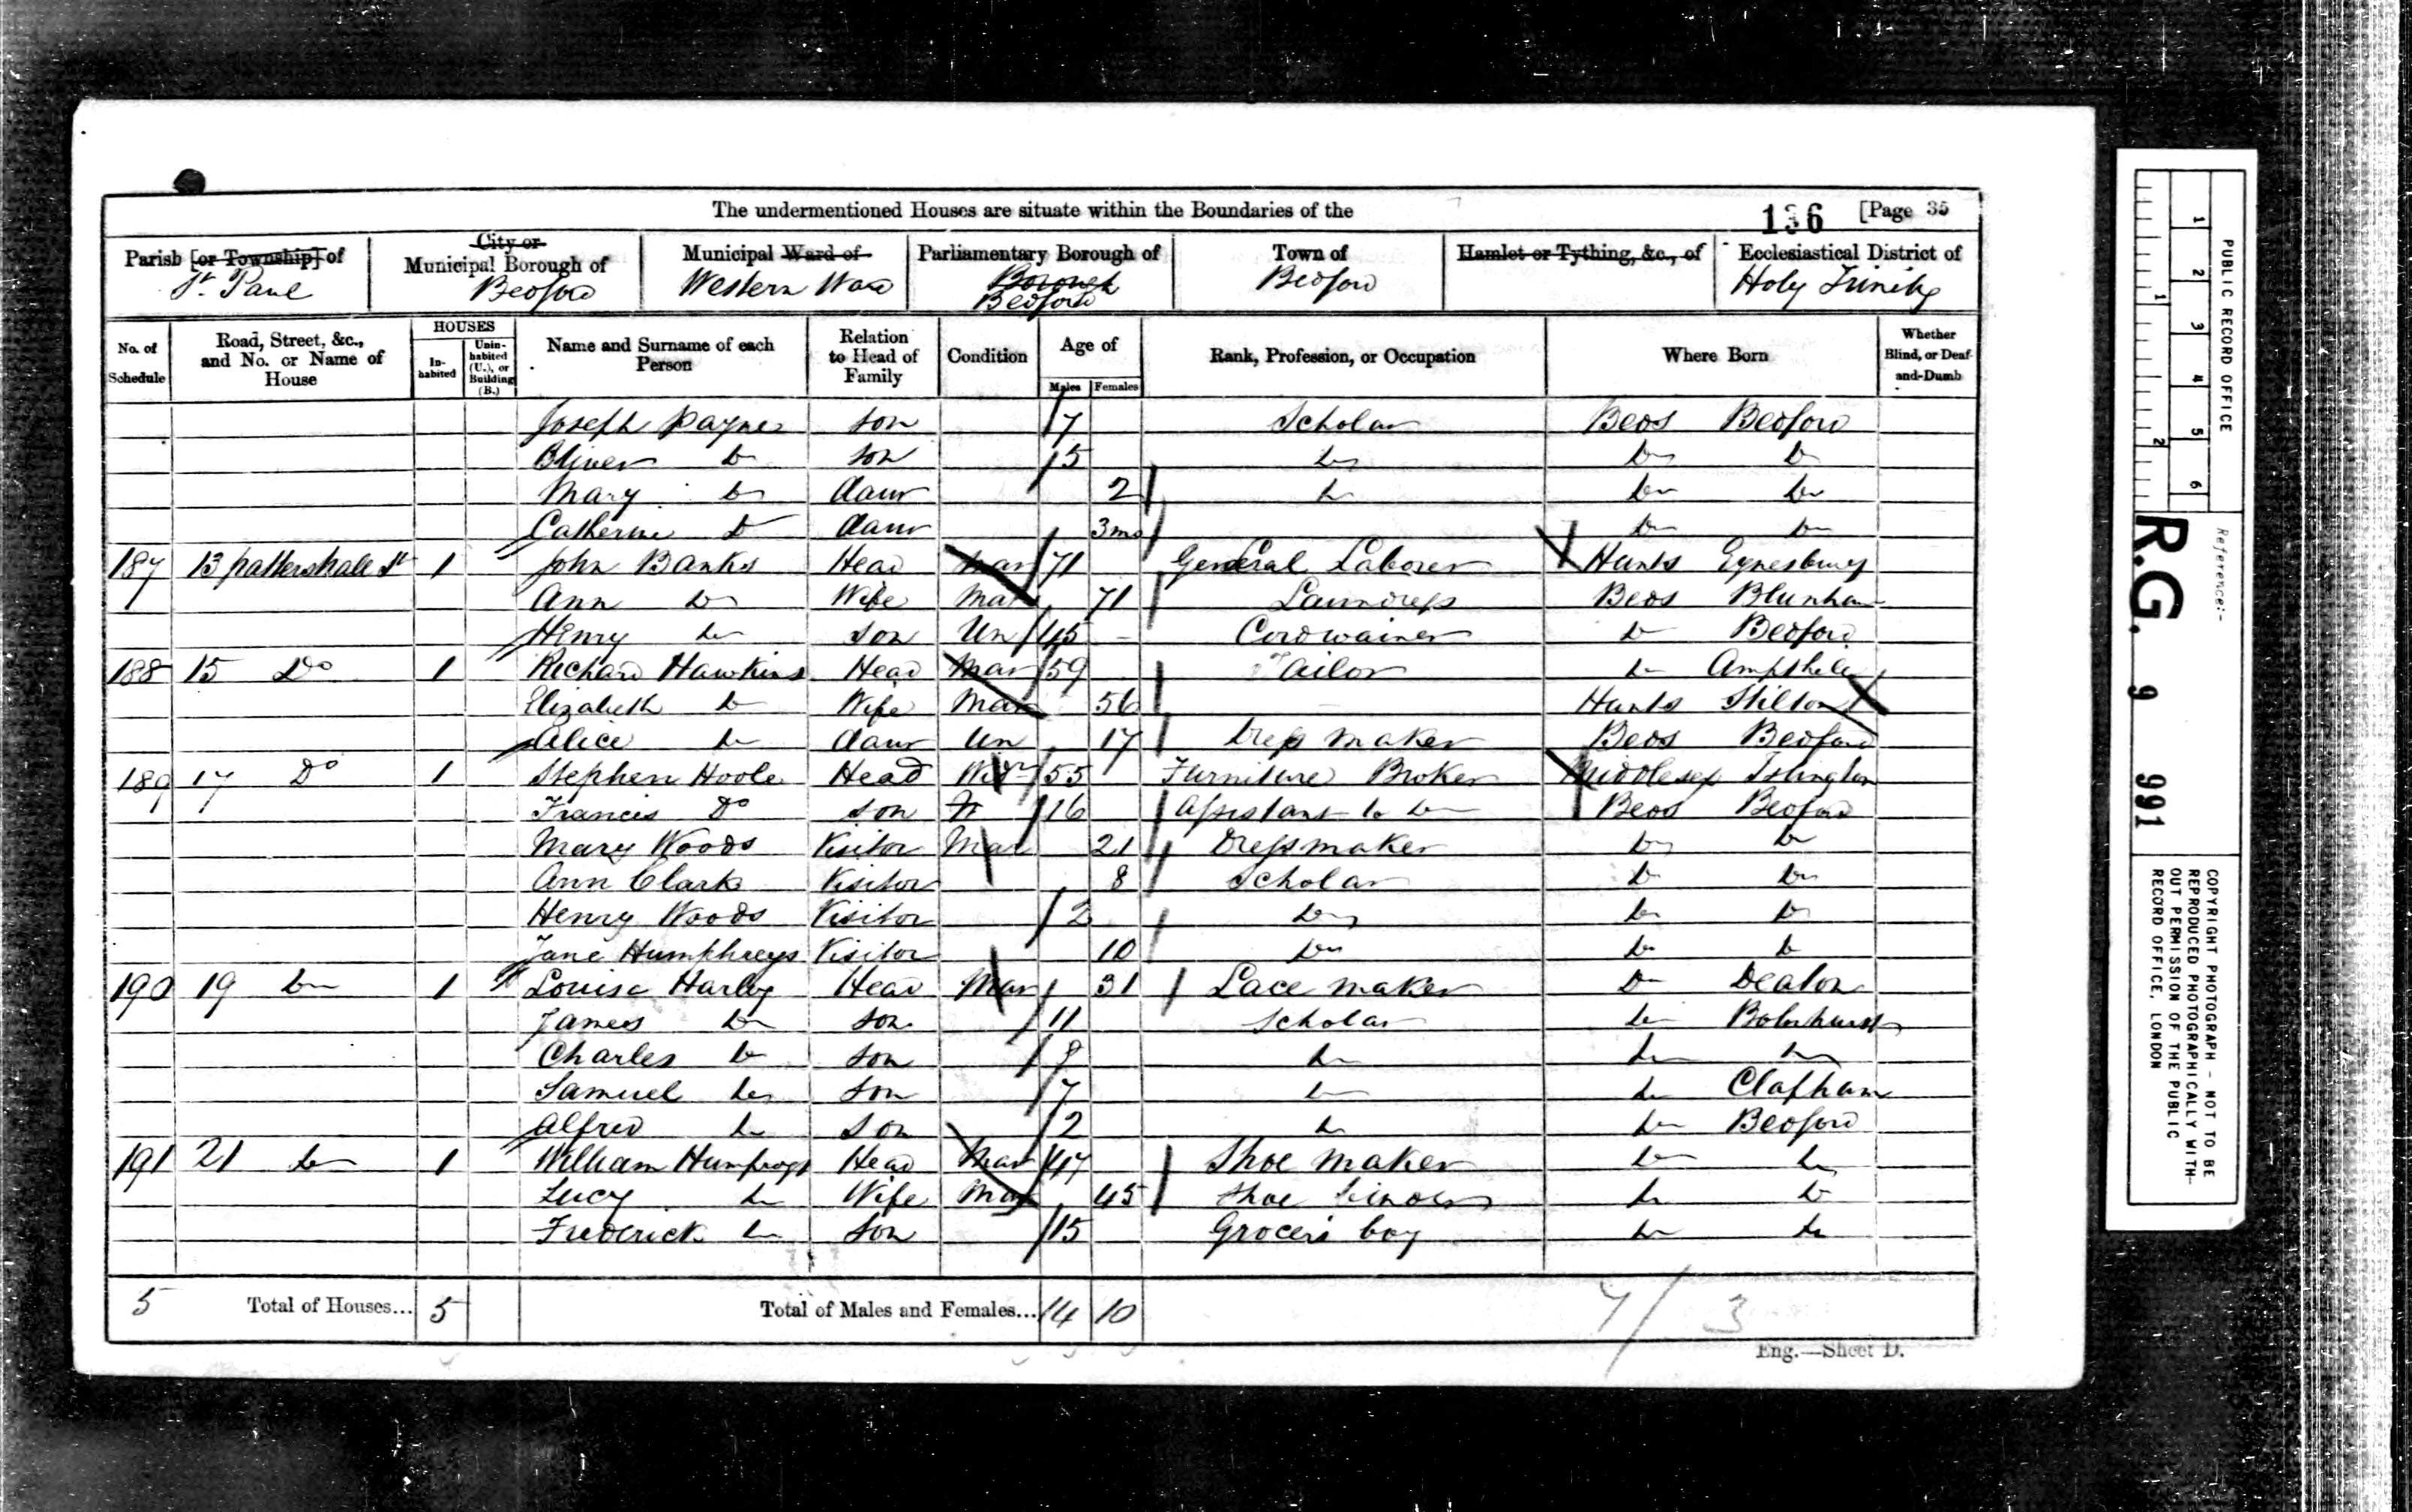 The undermentioned Houses are situate within the Boundaries of the
136 [Page 35
Parish [or Township] of St. Paul
City or Municipal Borough of Bedford
Municipal Ward of Western Ward
Parliamentary Borough of Borough Bedford
Town of Bedford
Hamlet or Tything, &c., of
Ecclesiastical District of Holy Trinity
No. of Schedule
Road, Street, &c., and No. or Name of House
HOUSES
Inhabited
Uninhabited (U.), or Building (B.)
Name and Surname of each Person
Relation to Head of Family
Condition
Age of
Males Females
Rank, Profession, or Occupation
Where Born
Whether Blind, or Deaf-and-Dumb
Joseph Payne son 7 Scholar Beds Bedford
Oliver Do son 5 Do Do Do
Mary Do Daur 2 Do Do Do
Catherine Do Daur 3mo Do Do
187 13 pattershall St 1 John Banks Head Mar 71 General Laborer Hunts Eynesbury
Ann Do Wife Mar 71 Laundress Beds Blunham
Henry Do son Un 45 Cordwainer Do Bedford
188 15 Do 1 Richard Hawkins Head Mar 59 Tailor Do Ampthill
Elizabeth Do Wife Mar 56 Hunts Stilton
Alice Do Daur Un 17 Dress maker Beds Bedford
189 17 Do 1 Stephen Hoole Head Widr 55 Furniture Broker Middlesex Islington
Francis Do son 16 Assistant to Do Beds Bedford
Mary Woods Visitor Mar 21 Dressmaker Do Do
Ann Clark Visitor 8 Scholar Do Do
Henry Woods Visitor 2 Do Do Do
Jane Humphreys Visitor 10 Do Do Do
190 19 Do 1 Louisa Harley Head Mar 31 Lace maker Do Deaton
James Do son 11 Scholar Do Bolnhurst
Charles Do son 9 Do Do Do
Samuel Do son 7 Do Do Clapham
Alfred Do son 2 Do Do Bedford
191 21 Do 1 William Humfrays Head Mar 47 Shoe maker Do Do
Lucy Do Wife Mar 45 Shoe binder Do Do
Frederick Do son 15 Grocers boy Do Do
5 Total of Houses... 5 Total of Males and Females... 14 10
7/3
Eng.—Sheet D.
PUBLIC RECORD OFFICE
1 2 3 4 5 6
1 2
Reference:-
R.G. 9 991
COPYRIGHT PHOTOGRAPH - NOT TO BE
REPRODUCED PHOTOGRAPHICALLY WITH-
OUT PERMISSION OF THE PUBLIC
RECORD OFFICE, LONDON